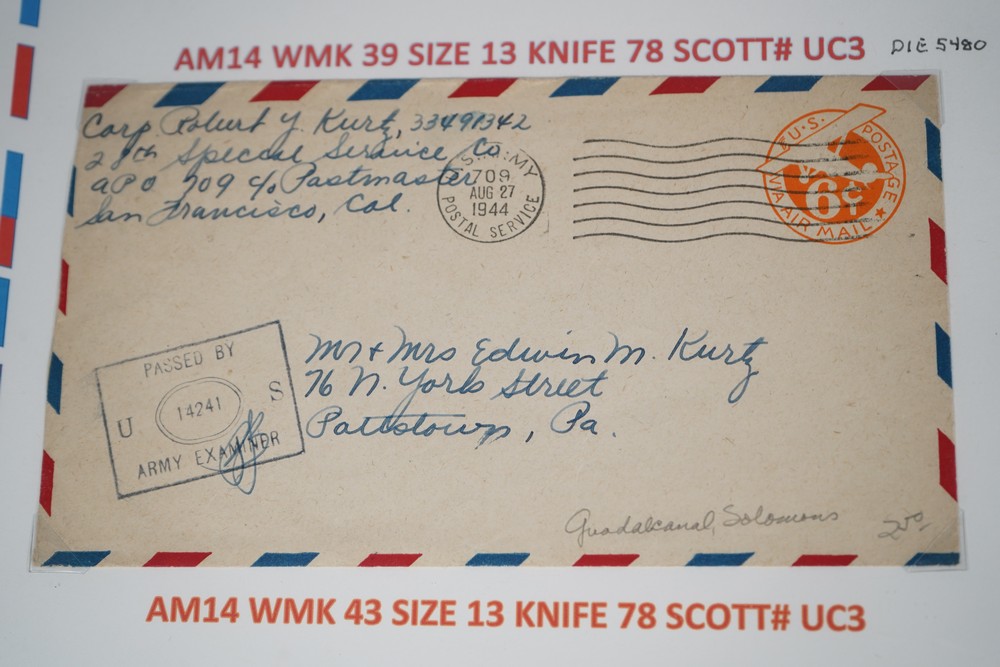 AM14 WMK 39 SIZE 13 KNIFE 78 SCOTT# UC3
DIE 5480
Corp. Robert Y. Kurtz, 33491342
28th Special Service Co
APO 709 c/o Postmaster
San Francisco, Cal.
U.S. ARMY
709
AUG 27
1944
POSTAL SERVICE
U.S. POSTAGE
6¢
VIA AIR MAIL
PASSED BY
U 14241 S
ARMY EXAMINER
Mr + Mrs Edwin M. Kurtz
76 N. York Street
Pottstown, Pa.
Guadalcanal, Solomons
AM14 WMK 43 SIZE 13 KNIFE 78 SCOTT# UC3